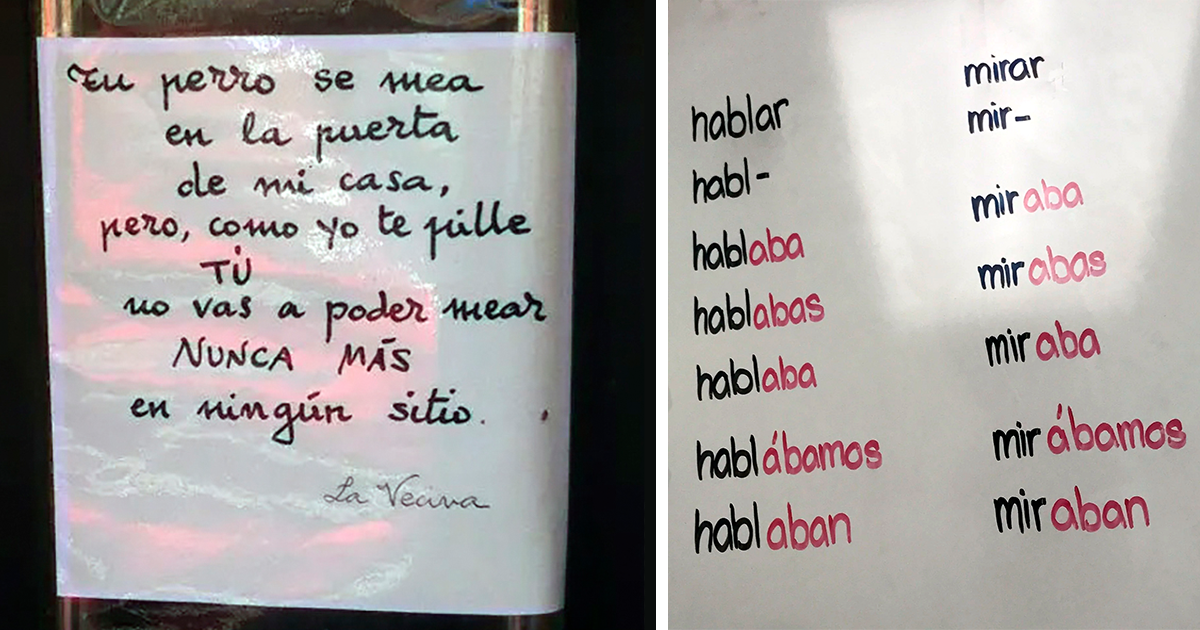 Tu perro se mea
en la puerta
de mi casa,
pero, como yo te pille
TÚ
no vas a poder mear
NUNCA MÁS
en ningún sitio.
La Vecina
hablar
habl-
hablaba
hablabas
hablaba
hablábamos
hablaban
mirar
mir-
miraba
mirabas
miraba
mirábamos
miraban